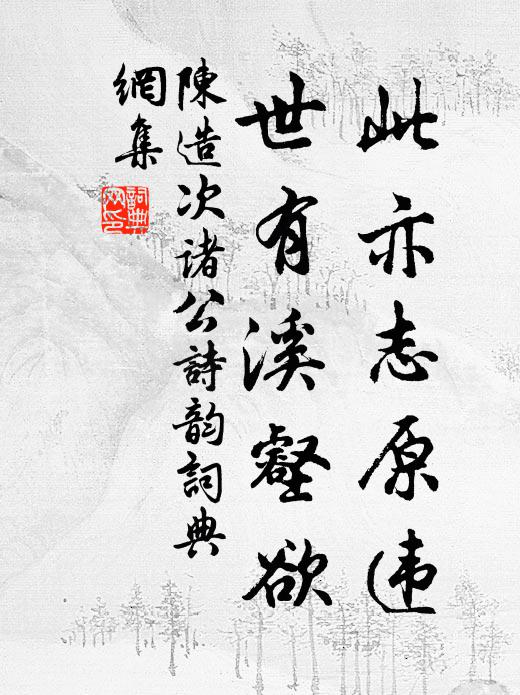 此亦志原违
世有溪壑欲
陳造次诸公詩韵詞典
網集
詞典
网印